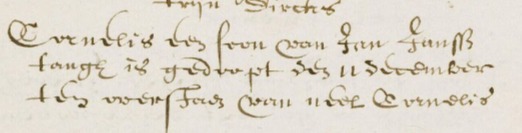 trijn Dircks
Cornelis een soon van Jan Janss
tange is gedoopt den 11 december
ten overstaen van neel Cornelis